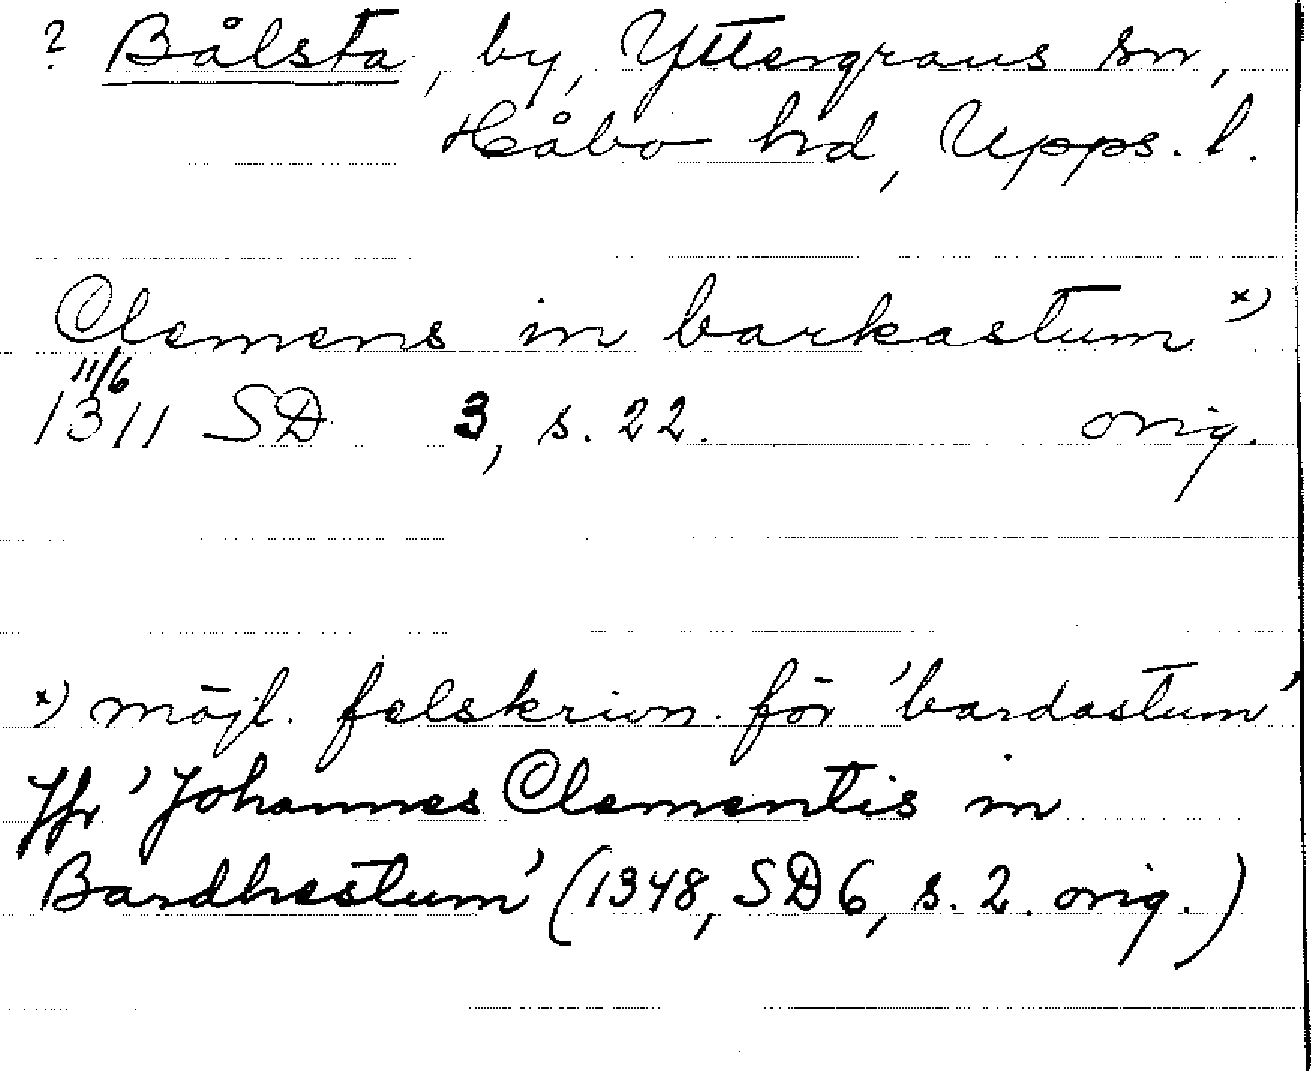 ? Bålsta, by, Yttergrans sn,
Håbo hd, Upps. l.
Clemens in barkastum x)
11/6
1311 SD 3, s. 22. orig.
x) möjl. felskrivn. för 'bardastum'
Jfr 'Johannes Clementis in
Bardhestum' (1348, SD 6, s. 2. orig.)